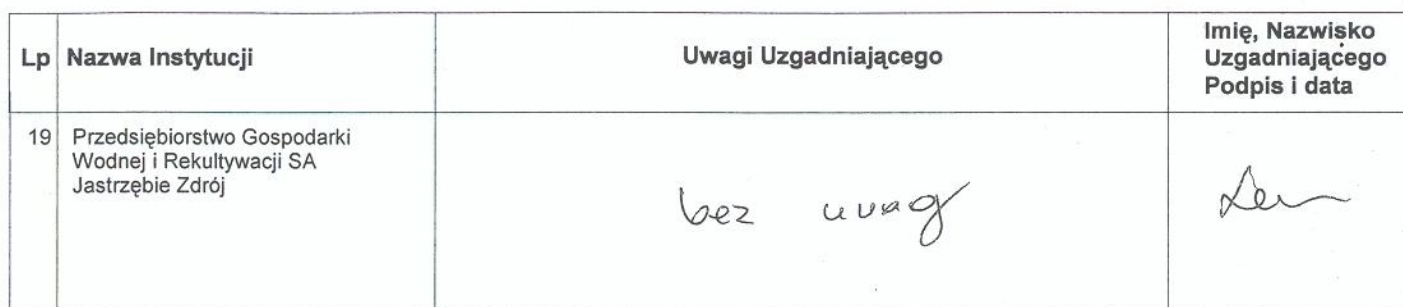 Lp Nazwa Instytucji Uwagi Uzgadniającego Imię, Nazwisko
Uzgadniającego
Podpis i data
19 Przedsiębiorstwo Gospodarki
Wodnej i Rekultywacji SA
Jastrzębie Zdrój
bez uwag